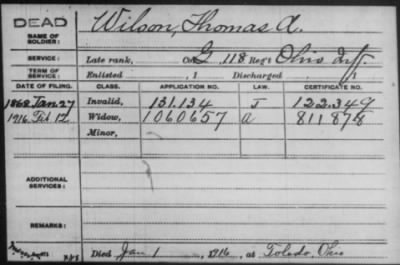 DEAD
Wilson, Thomas A.
NAME OF SOLDIER:
SERVICE: Late rank, Co G, 118 Reg't Ohio Inf.
TERM OF SERVICE: Enlisted , 1 Discharged , 1
DATE OF FILING. CLASS. APPLICATION NO. LAW. CERTIFICATE NO.
1868 Jan 27 Invalid, 131.134 J 122.349
1916 Feb 12 Widow, 1060657 a 811.878
Minor,
ADDITIONAL SERVICES:
REMARKS:
Died Jan 1, 1916, at Toledo, Ohio